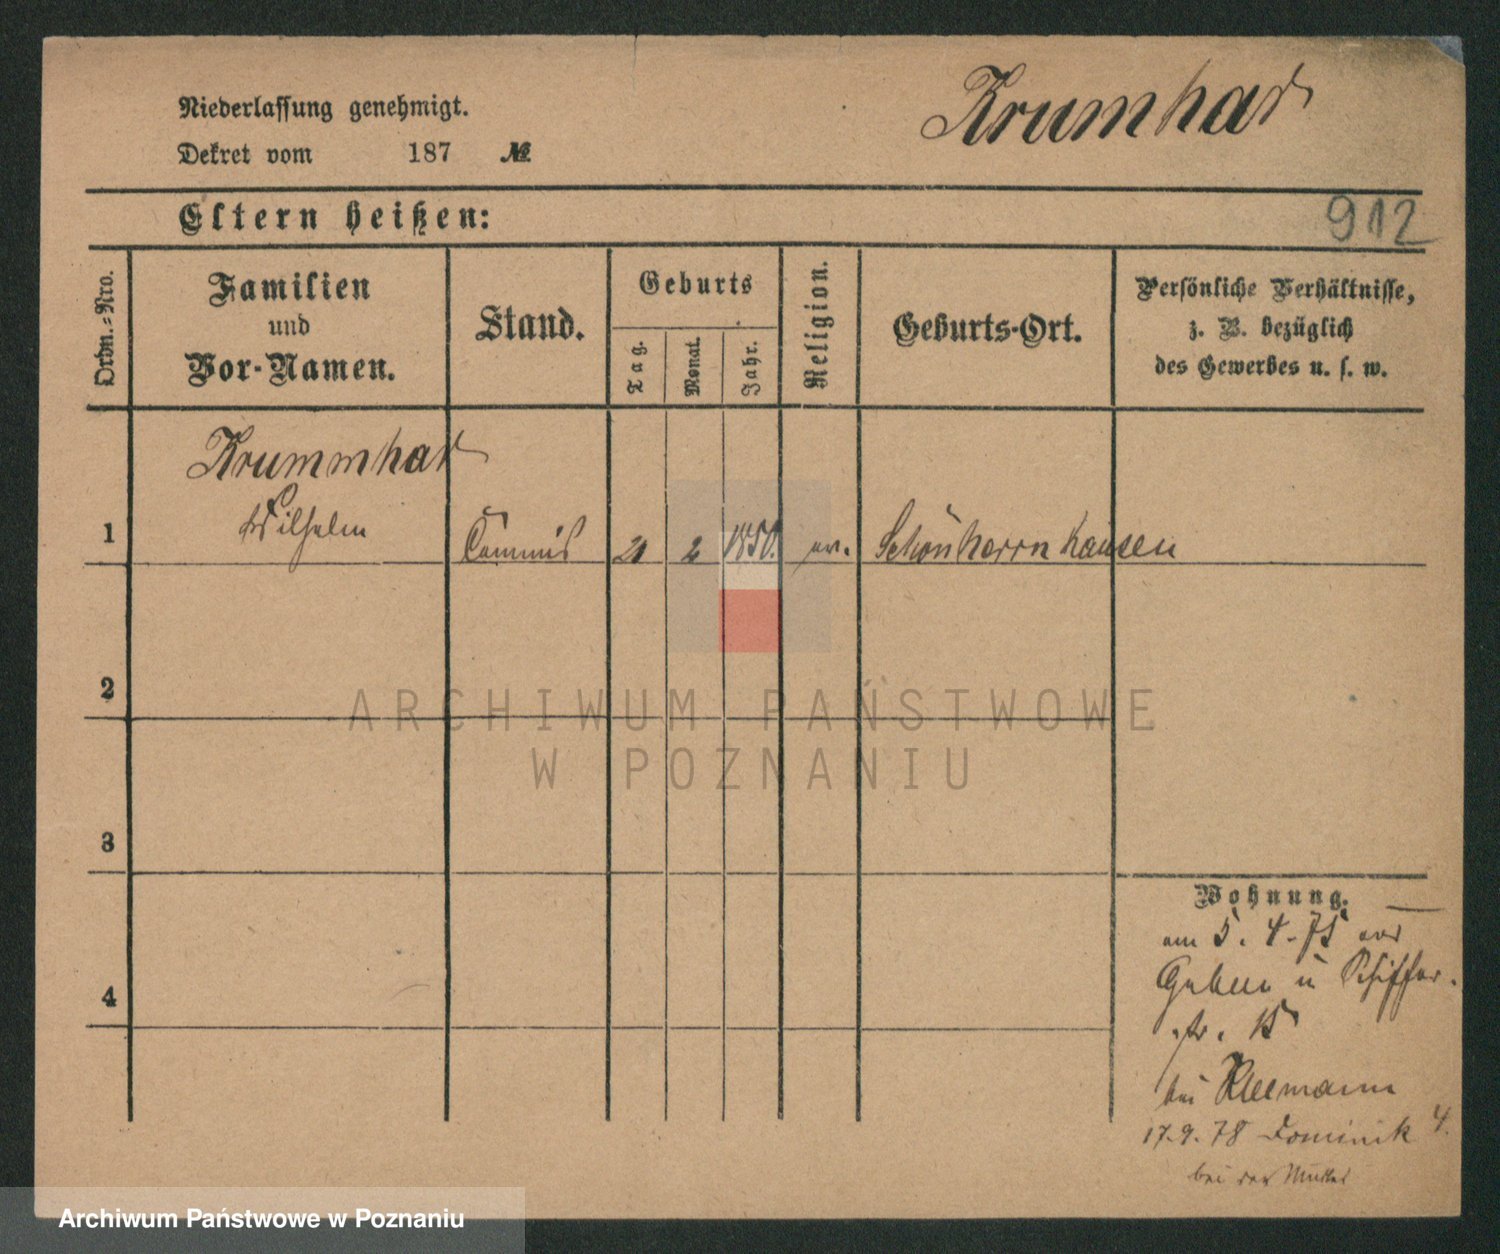 Krumhar
Niederlassung genehmigt.
Dekret vom 187 №
912
Eltern heißen:
Ordn.-Nro.
Familien
und
Vor-Namen.
Stand.
Geburts
Tag.
Monat.
Jahr.
Religion.
Geburts-Ort.
Persönliche Verhältnisse,
z. B. bezüglich
des Gewerbes u. s. w.
Krummhar
1 Wilhelm Commis 21 2 1850. ev. Schönherrnhausen
2
ARCHIWUM PAŃSTWOWE
W POZNANIU
3
4
Wohnung.
am 5. 4. 75 aus
Guben n Schiffer-
str. 15
bei Kleemann
17.9.78 Dominik 4.
bei der Mutter
Archiwum Państwowe w Poznaniu